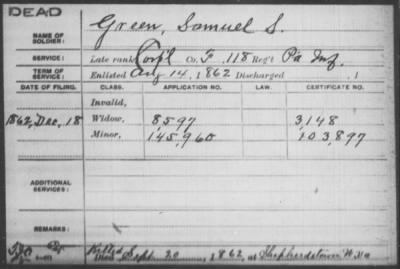 DEAD
NAME OF SOLDIER: Green, Samuel S.
SERVICE: Late rank Corp'l Co. F, 118 Reg't Pa Inf.
TERM OF SERVICE: Enlisted Aug 14, 1862 Discharged , 1
DATE OF FILING. CLASS. APPLICATION NO. LAW. CERTIFICATE NO.
Invalid,
1862, Dec, 18 Widow, 8597 3,148
Minor, 145,960 103,897
ADDITIONAL SERVICES:
REMARKS:
Killed
Died Sept. 20, 1862, at Shepherdstown W.Va